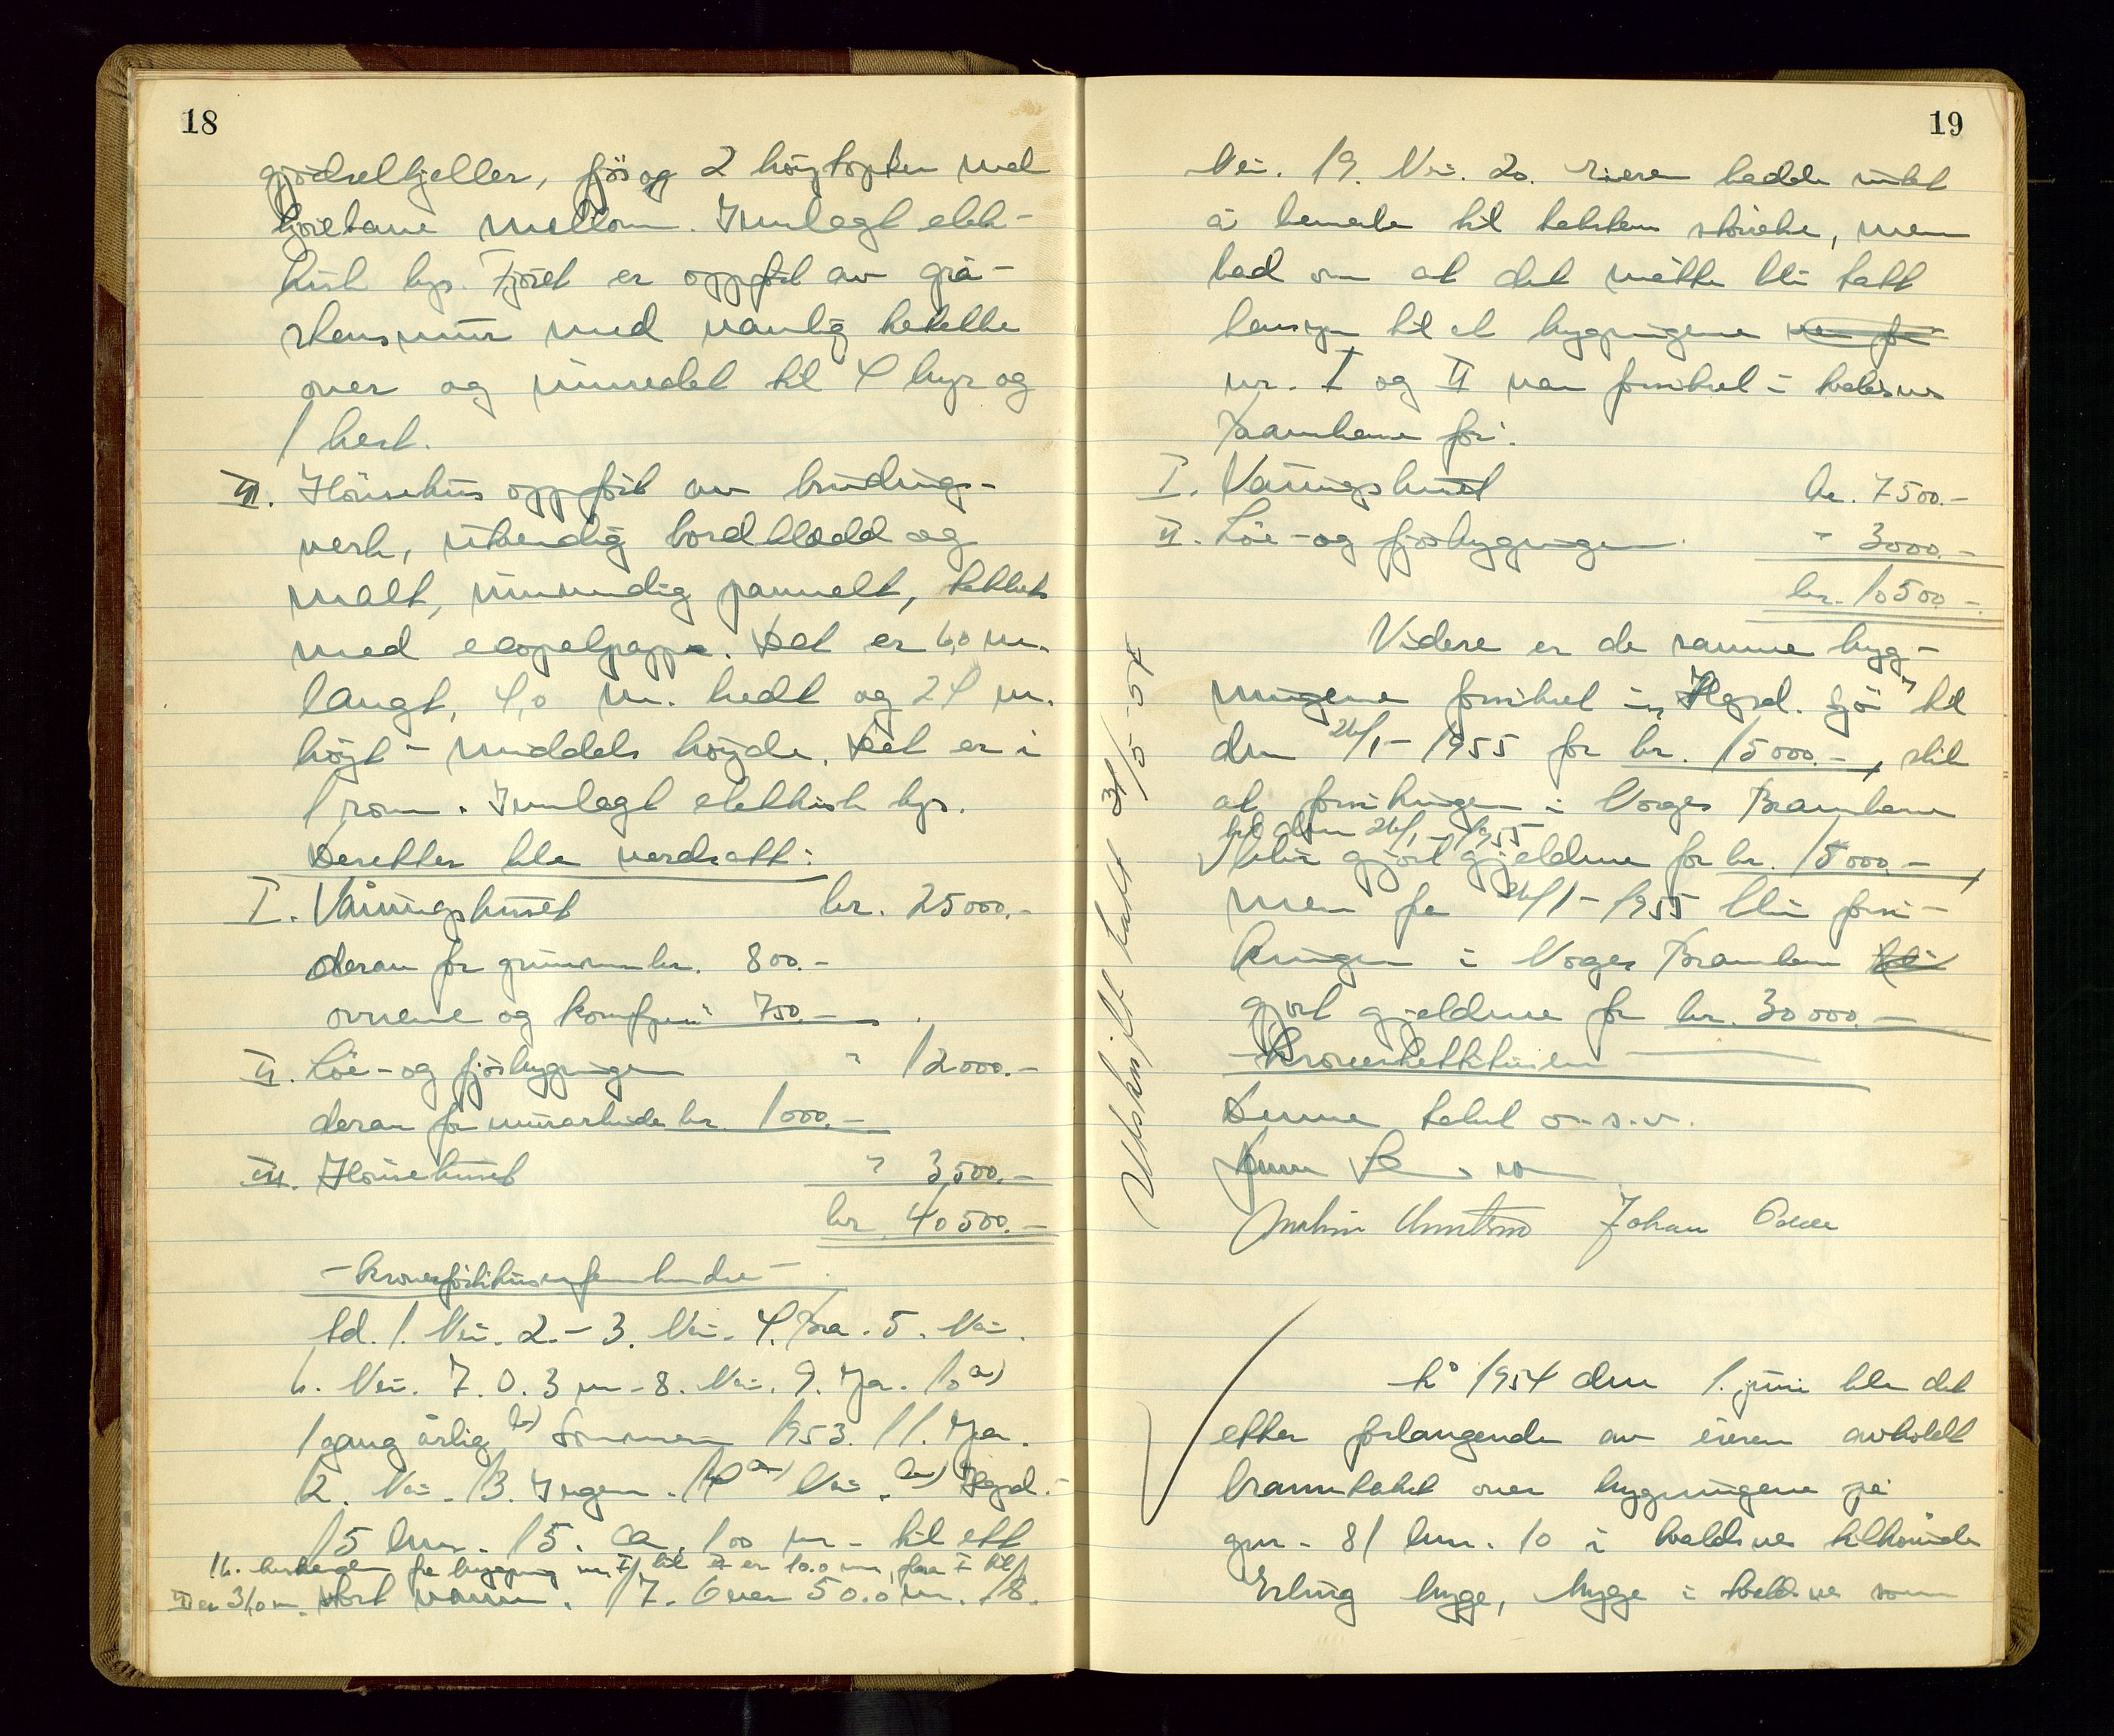 18
gjødselkjeller, fjøs og 2 høystopker med
kjørebane mellom. Innlagt elek-
trisk lys. Fjøset er oppført av grå-
stensmur med vanlig
over og innredet til 4 kyr og
1 hest.
III. Hönsehus oppført av bindings-
verk, utvendig bordkledd og
malt, innvendig pannelt, tekket
med papp. Det er 6,0 m.
langt, 4,0 m. bredt og 2,4 m.
högt - middels höyde. Det er i
1 rom. Innlagt elektrisk lys.
Deretter ble verdsatt:
I. Våningshuset kr. 25000.-
derav for grunnmur kr. 800.-
ovnene og komfyren " 750.-
II. Löe- og fjösbygningen " 12000.-
derav for murarbeide kr. 1000.-
III. Hönsehuset " 3,500.-
kr. 40500.-
- Kronerförtitusenfemhundre -
Ad. 1. Nei. 2.- 3. Nei. 4. Bra. 5. Nei.
6. Nei. 7. 0.3 m. 8. Nei. 9. Ja. 10 a)
1 gang årlig b) Sommeren 1953. 11. Ja.
12. Nei. 13. Ingen. 14 a) Nei. b) Hgsd.
15 km. 15. Ca. 100 m. til ett
16. Avstanden fra bygning nr. I til II er 10.0 m, fra I til
III er 31,0 m. stort vann. 17. Over 50.0 m. 18.
19
Nei. 19. Nei. 20. Eieren hadde intet
å bemerke til takstens størrelse, men
bad om at det måtte bli tatt
hensyn til at bygningene
nr. I og II var forsikret i
Brannkasse for:
I. Våningshuset kr. 7500.-
II. Löe- og fjösbygningen " 3000.-
kr. 10500.-
Videre er de samme byg-
ningene forsikret i "Hgsd. Sjö" til
den 26/1- 1955 for kr. 15000.-, slik
at forsikringen i Norges Brannkasse
til den 26/1- 1955
blir gjort gjeldene for kr. 15000.-,
men fra 26/1- 1955 blir forsi-
kringen i Norges Brannkasse
gjort gjeldene for kr. 30000.-
- Kronertrettitusen -
Denne takst o.s.v.
Johan
Utskrift tatt 31/5-54
År 1954 den 1. juni ble det
etter forlangende av eieren avholdt
branntakst over bygningene på
gnr. 81 bnr. 10 i tilhörende
Erling Bygge, Bygge i som